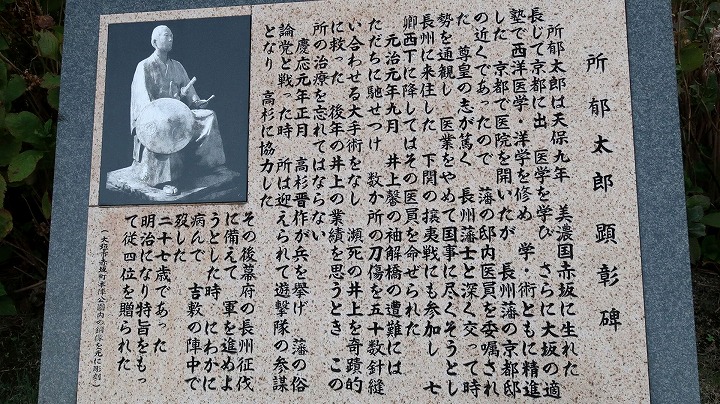 所郁太郎 顕彰碑
所郁太郎は天保九年 美濃国赤坂に生れた
長じて京都に出 医学を学び さらに大坂の適
塾で西洋医学・洋学を修め 学・術ともに精進
した 京都で医院を開いたが 長州藩の京都邸
の近くであったので 藩の邸内医員を委嘱され
た 尊皇の志が篤く 長州藩士と深く交って時
勢を通観し 医業をやめて国事に尽くそうとし
長州に来住した 下関の攘夷戦にも参加し 七
卿西下に降してはその医員を命ぜられた
元治元年九月 井上馨の袖解橋の遭難には
ただちに馳せつけ 数か所の刀傷を五十数針縫
い合わせる大手術をなし 瀕死の井上を奇蹟的
に救った 後年の井上の業績を思うとき この
所の治療を忘れてはならない
慶応元年正月 高杉晋作が兵を挙げ 藩の俗
論党と戦った時 所は迎えられて遊撃隊の参謀
となり 高杉に協力した
その後幕府の長州征伐
に備えて 軍を進めよ
うとした時 にわかに
病んで 吉敷の陣中で
歿した
二十七歳であった
明治になり特旨をもっ
て従四位を贈られた
(大垣市赤坂町本陣公園内の銅像を元に彫刻)